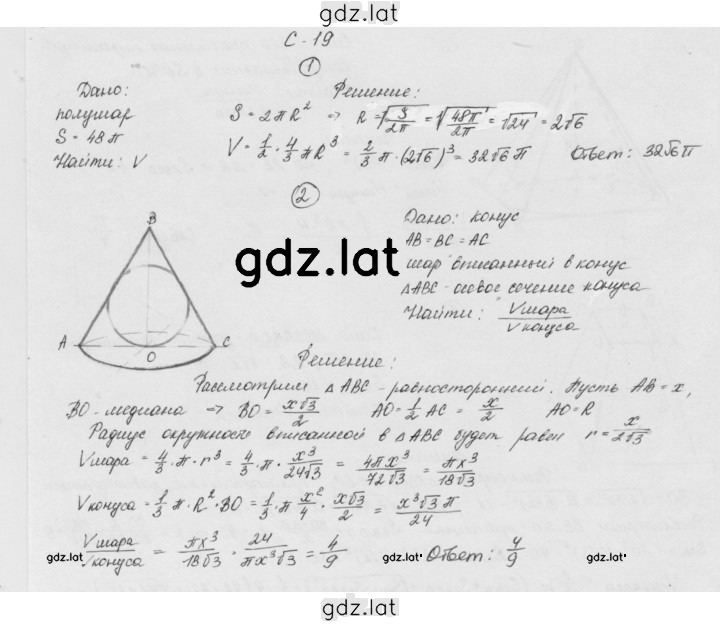 gdz.lat
С-19
①
Дано:
полушар
S = 48π
Найти: V
Решение:
S = 2πR² => R = √(S/2π) = √(48π/2π) = √24 = 2√6
V = 1/2 · 4/3 πR³ = 2/3 π·(2√6)³ = 32√6 π Ответ: 32√6π
②
B
A
C
O
gdz.lat
Дано: конус
AB = BC = AC
шар вписанный в конус
△ABC - осевое сечение конуса
Найти: Vшара/Vконуса
Решение:
Рассмотрим △ABC - равносторонний. Пусть AB = x,
BO - медиана => BO = x√3/2 AO = 1/2 AC = x/2 AO = R
Радиус окружности вписанной в △ABC будет равен r = x/2√3
Vшара = 4/3 · π · r³ = 4/3 · π · x³/24√3 = 4πx³/72√3 = πx³/18√3
Vконуса = 1/3 π · R² · BO = 1/3 · π x²/4 · x√3/2 = x³√3 π/24
Vшара/Vконуса = πx³/18√3 · 24/πx³√3 = 4/9 Ответ: 4/9
gdz.lat
gdz.lat
gdz.lat
gdz.lat